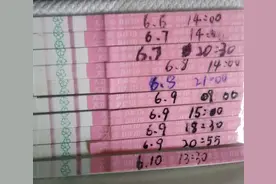 6.6 14:00
6.7
6.7 20:30
6.8 14:00
6.8 21:00
6.9 00
6.9 15:00
6.9 18:30
6.9 20:55
6.10 13:30